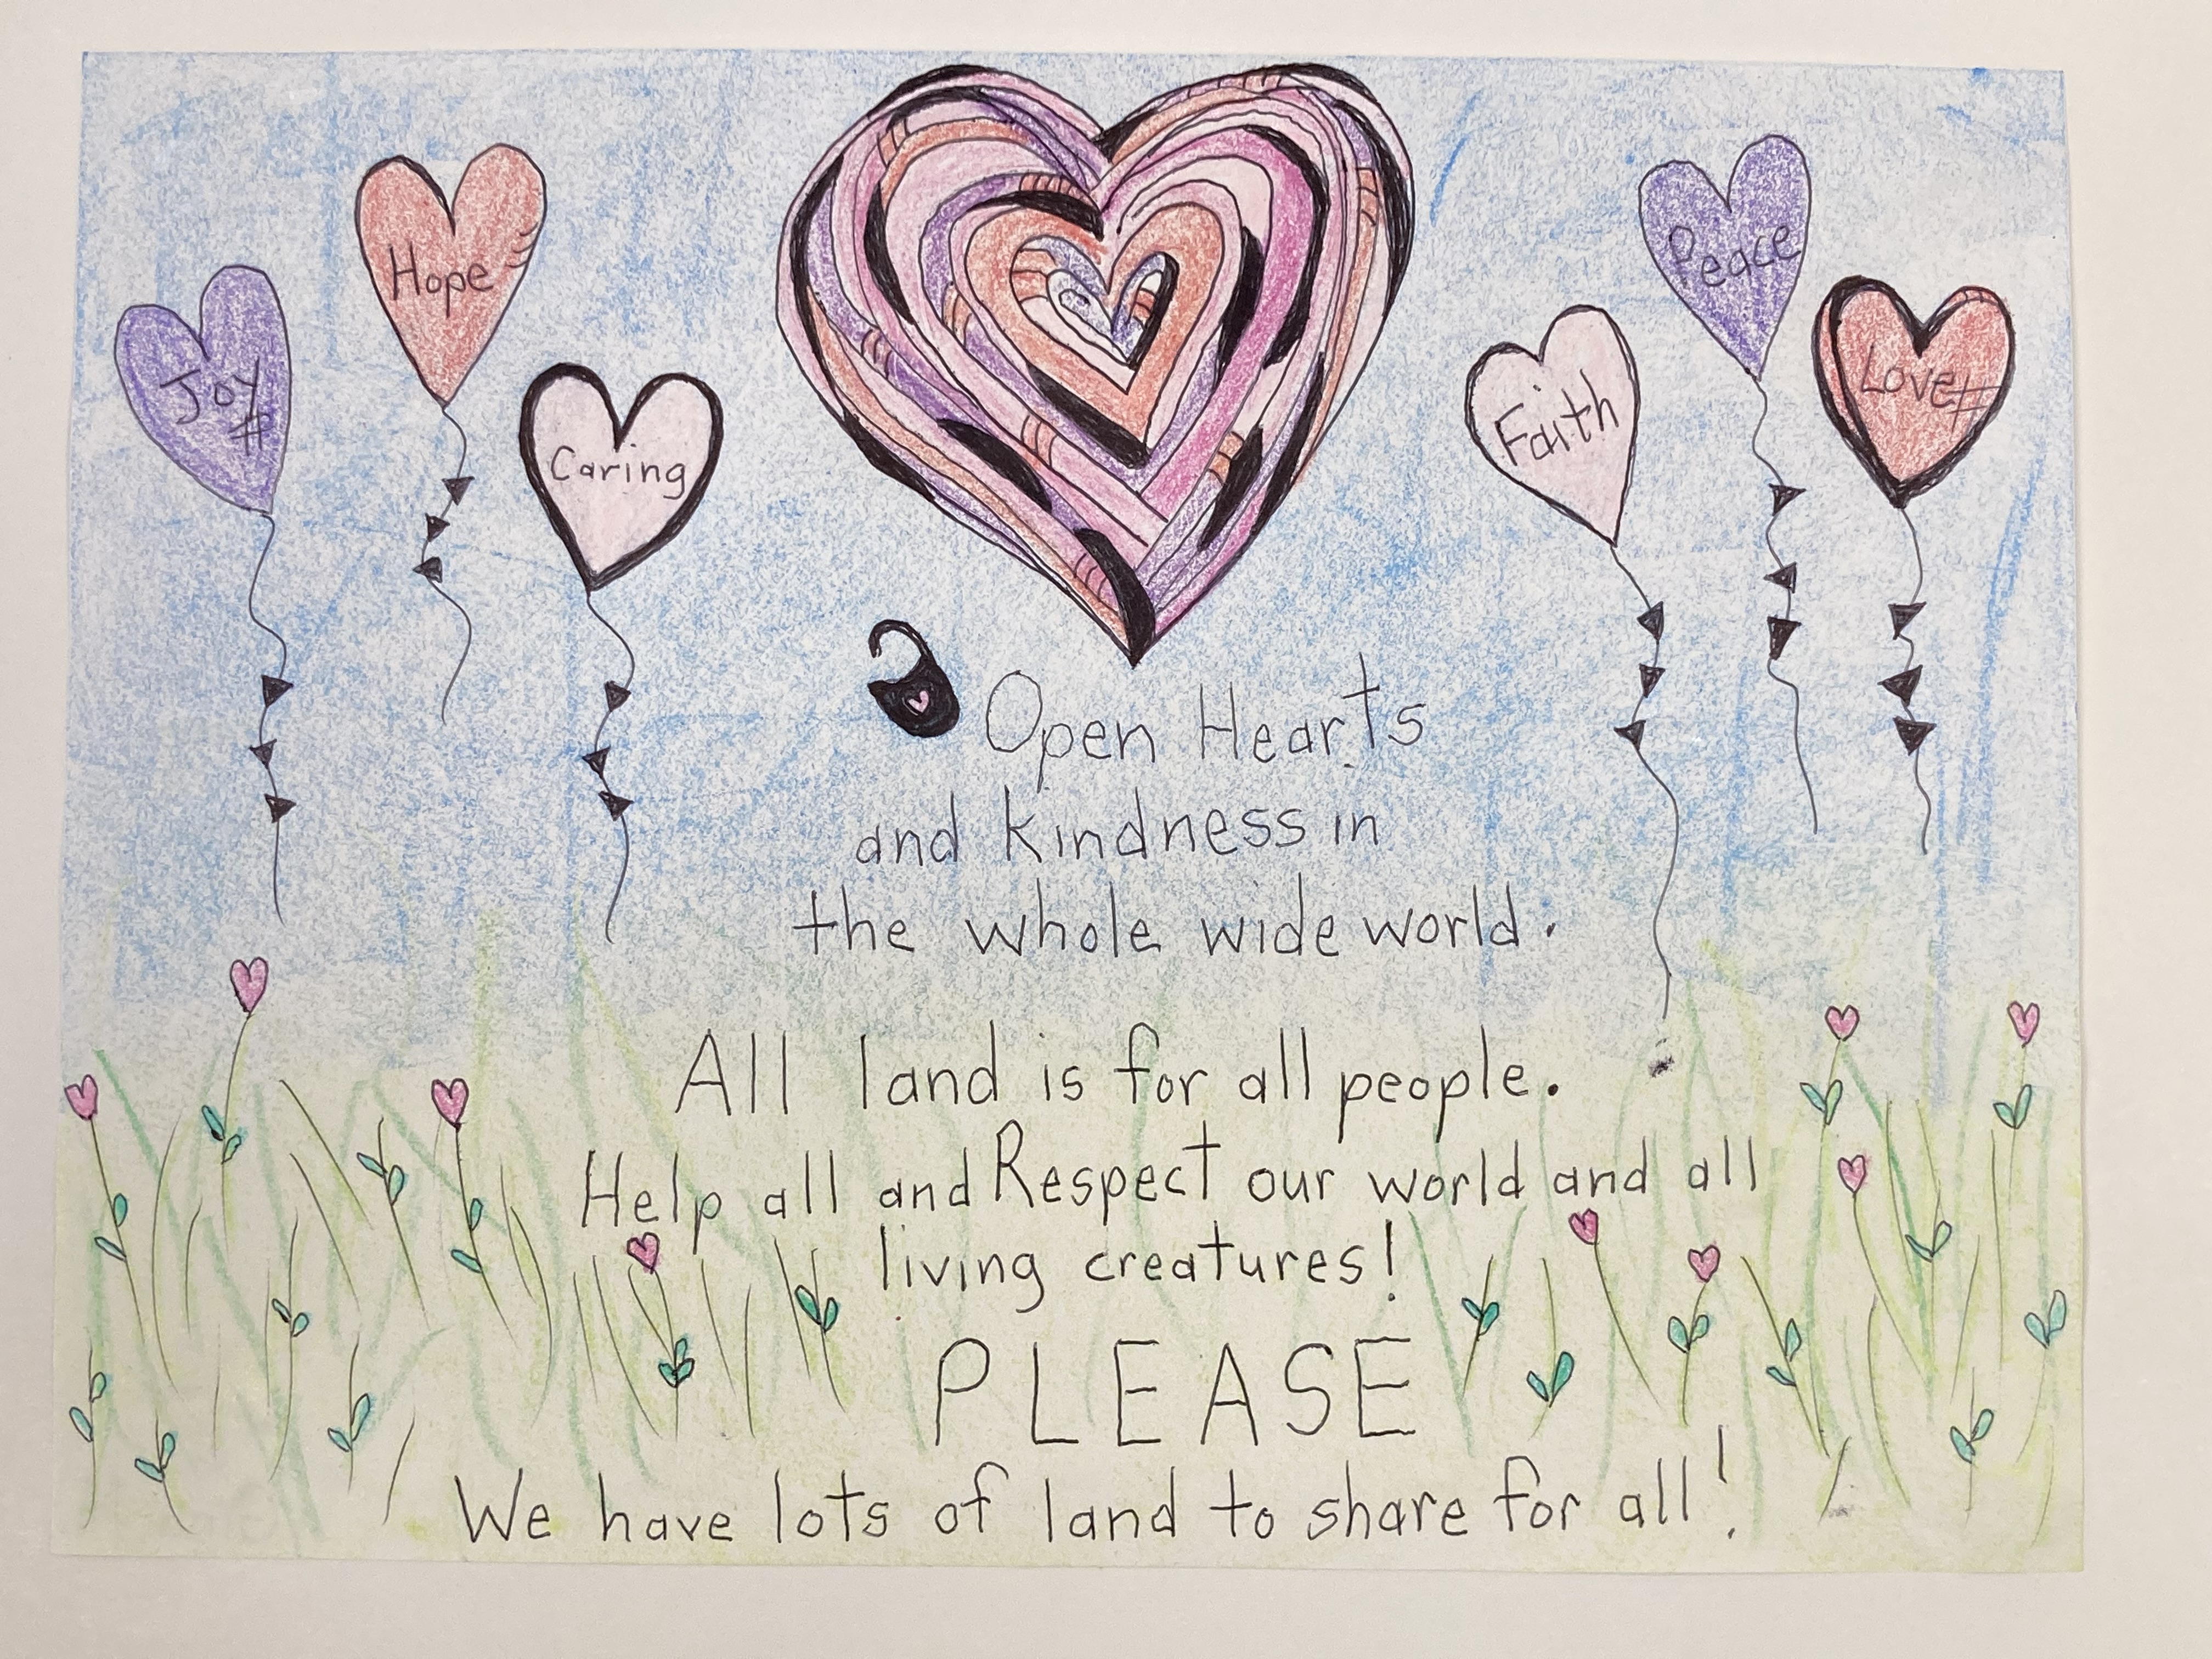 Joy
Hope
Caring
Faith
Peace
Love
Open Hearts
and kindness in
the whole wide world.
All land is for all people.
Help all and Respect our world and all
living creatures!
PLEASE
We have lots of land to share for all!